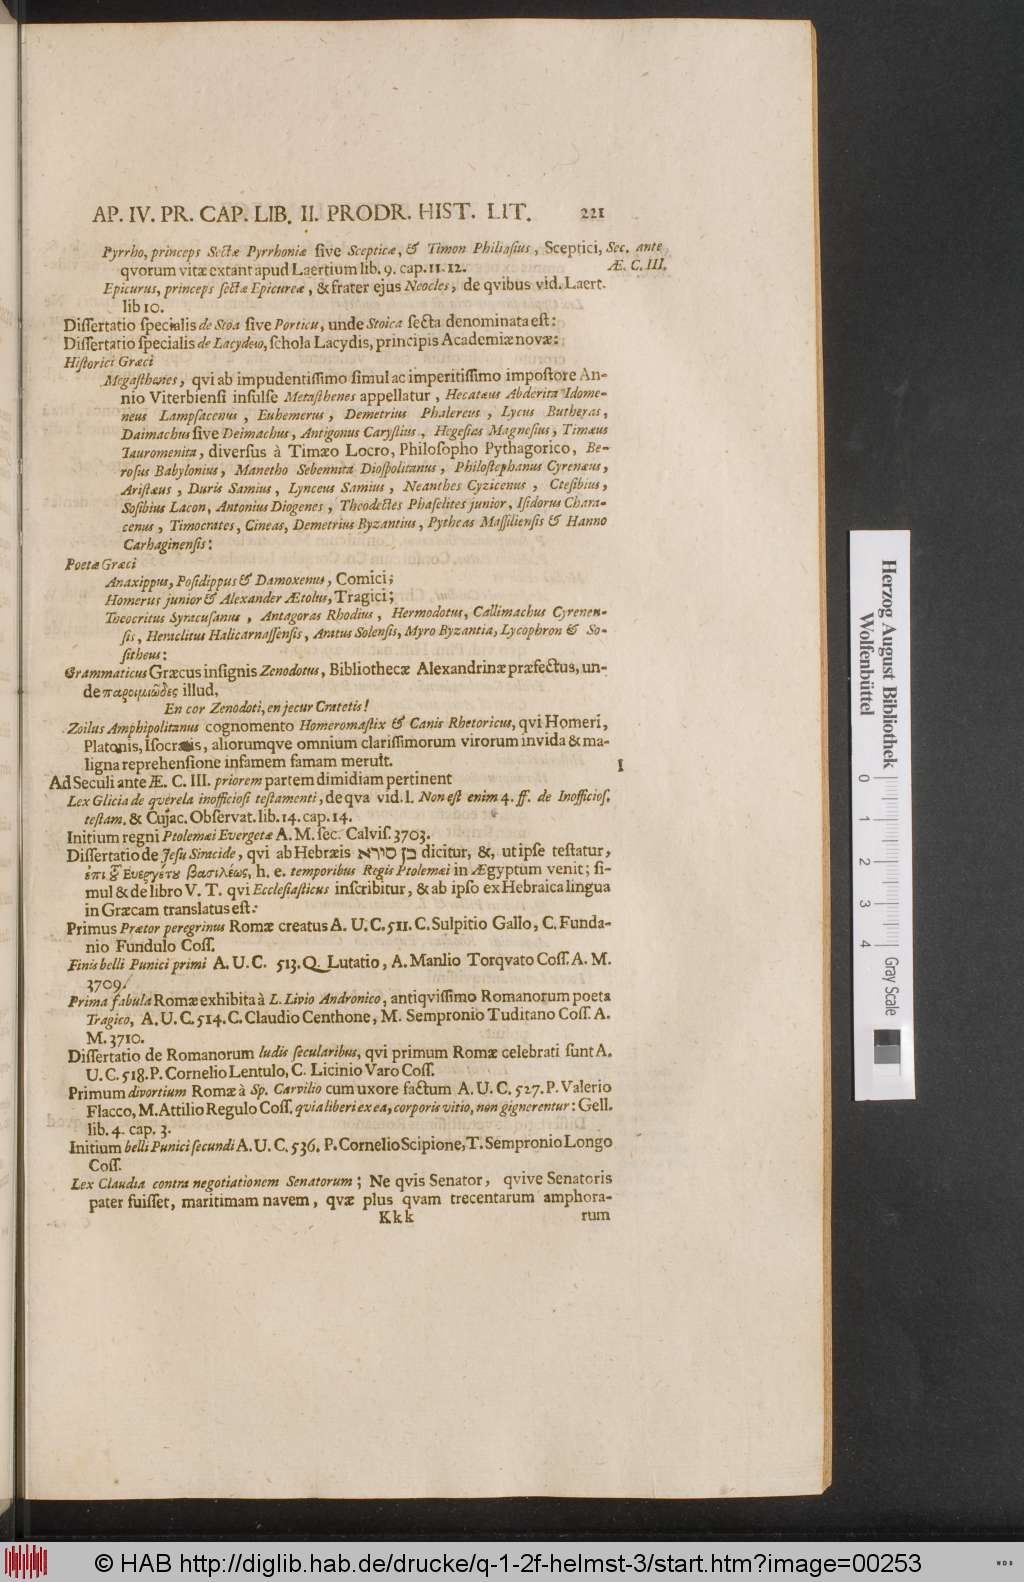 AP. IV. PR. CAP. LIB. II. PRODR. HIST. LIT. 221
Pyrrho, princeps Sectæ Pyrrhoniæ ſive Scepticæ, & Timon Philiaſius, Sceptici, Sec. ante
qvorum vitæ extant apud Laertium lib. 9. cap. 11. 12. Æ. C. III.
Epicurus, princeps ſectæ Epicureæ, & frater ejus Neocles, de qvibus vid. Laert.
lib 10.
Diſſertatio ſpecialis de Stoa ſive Porticu, unde Stoica ſecta denominata eſt:
Diſſertatio ſpecialis de Lacydeo, ſchola Lacydis, principis Academiæ novæ:
Hiſtorici Græci
Megaſthenes, qvi ab impudentiſſimo ſimul ac imperitiſſimo impoſtore An-
nio Viterbienſi inſulſe Metaſthenes appellatur, Hecatæus Abderita Idome-
neus Lampſacenus, Euhemerus, Demetrius Phalereus, Lycus Butheras,
Daimachus ſive Deimachus, Antigonus Caryſtius, Hegeſias Magneſius, Timæus
Tauromenita, diverſus à Timæo Locro, Philoſopho Pythagorico, Be-
roſus Babylonius, Manetho Sebennita Dioſpolitanus, Philoſtephanus Cyrenæus,
Ariſtæus, Duris Samius, Lynceus Samius, Neanthes Cyzicenus, Cteſibius,
Soſibius Lacon, Antonius Diogenes, Theodectes Phaſelites junior, Iſidorus Chara-
cenus, Timocrates, Cineas, Demetrius Byzantius, Pytheas Maſſilienſis & Hanno
Carhaginenſis:
Poetæ Græci
Anaxippus, Poſidippus & Damoxenus, Comici;
Homerus junior & Alexander Ætolus, Tragici;
Theocritus Syracuſanus, Antagoras Rhodius, Hermodotus, Callimachus Cyrenen-
ſis, Heraclitus Halicarnaſſenſis, Aratus Solenſis, Myro Byzantia, Lycophron & So-
ſitheus:
Grammaticus Græcus inſignis Zenodotus, Bibliothecæ Alexandrinæ præfectus, un-
de παροιμιῶδες illud,
En cor Zenodoti, en jecur Cratetis!
Zoilus Amphipolitanus cognomento Homeromaſtix & Canis Rhetoricus, qvi Homeri,
Platonis, Iſocratis, aliorumqve omnium clariſſimorum virorum invida & ma-
ligna reprehenſione infamem famam meruit. I
Ad Seculi ante Æ. C. III. priorem partem dimidiam pertinent
Lex Glicia de qverela inofficioſi teſtamenti, de qva vid. l. Non eſt enim 4. ff. de Inofficioſ.
teſtam. & Cujac. Obſervat. lib. 14. cap. 14.
Initium regni Ptolemæi Evergetæ A. M. ſec. Calviſ. 3703.
Diſſertatio de Jeſu Siracide, qvi ab Hebræis בן סורא dicitur, &, ut ipſe teſtatur,
ἐπὶ τοῦ Ἐυεργέτου βασιλέως, h. e. temporibus Regis Ptolemæi in Ægyptum venit; ſi-
mul & de libro V. T. qvi Eccleſiaſticus inſcribitur, & ab ipſo ex Hebraica lingua
in Græcam translatus eſt:
Primus Prætor peregrinus Romæ creatus A. U. C. 511. C. Sulpitio Gallo, C. Funda-
nio Fundulo Coſſ.
Finis belli Punici primi A. U. C. 513. Q. Lutatio, A. Manlio Torqvato Coſſ. A. M.
3709.
Prima fabula Romæ exhibita à L. Livio Andronico, antiqviſſimo Romanorum poeta
Tragico, A. U. C. 514. C. Claudio Centhone, M. Sempronio Tuditano Coſſ. A.
M. 3710.
Diſſertatio de Romanorum ludis ſecularibus, qvi primum Romæ celebrati ſunt A.
U. C. 518. P. Cornelio Lentulo, C. Licinio Varo Coſſ.
Primum divortium Romæ à Sp. Carvilio cum uxore factum A. U. C. 527. P. Valerio
Flacco, M. Attilio Regulo Coſſ. qvia liberi ex ea, corporis vitio, non gignerentur: Gell.
lib. 4. cap. 3.
Initium belli Punici ſecundi A. U. C. 536. P. Cornelio Scipione, T. Sempronio Longo
Coſſ.
Lex Claudia contra negotiationem Senatorum; Ne qvis Senator, qvive Senatoris
pater fuiſſet, maritimam navem, qvæ plus qvam trecentarum amphora-
Kkk rum
Herzog August Bibliothek
Wolfenbüttel
0 1 2 3 4 Gray Scale
© HAB http://diglib.hab.de/drucke/q-1-2f-helmst-3/start.htm?image=00253